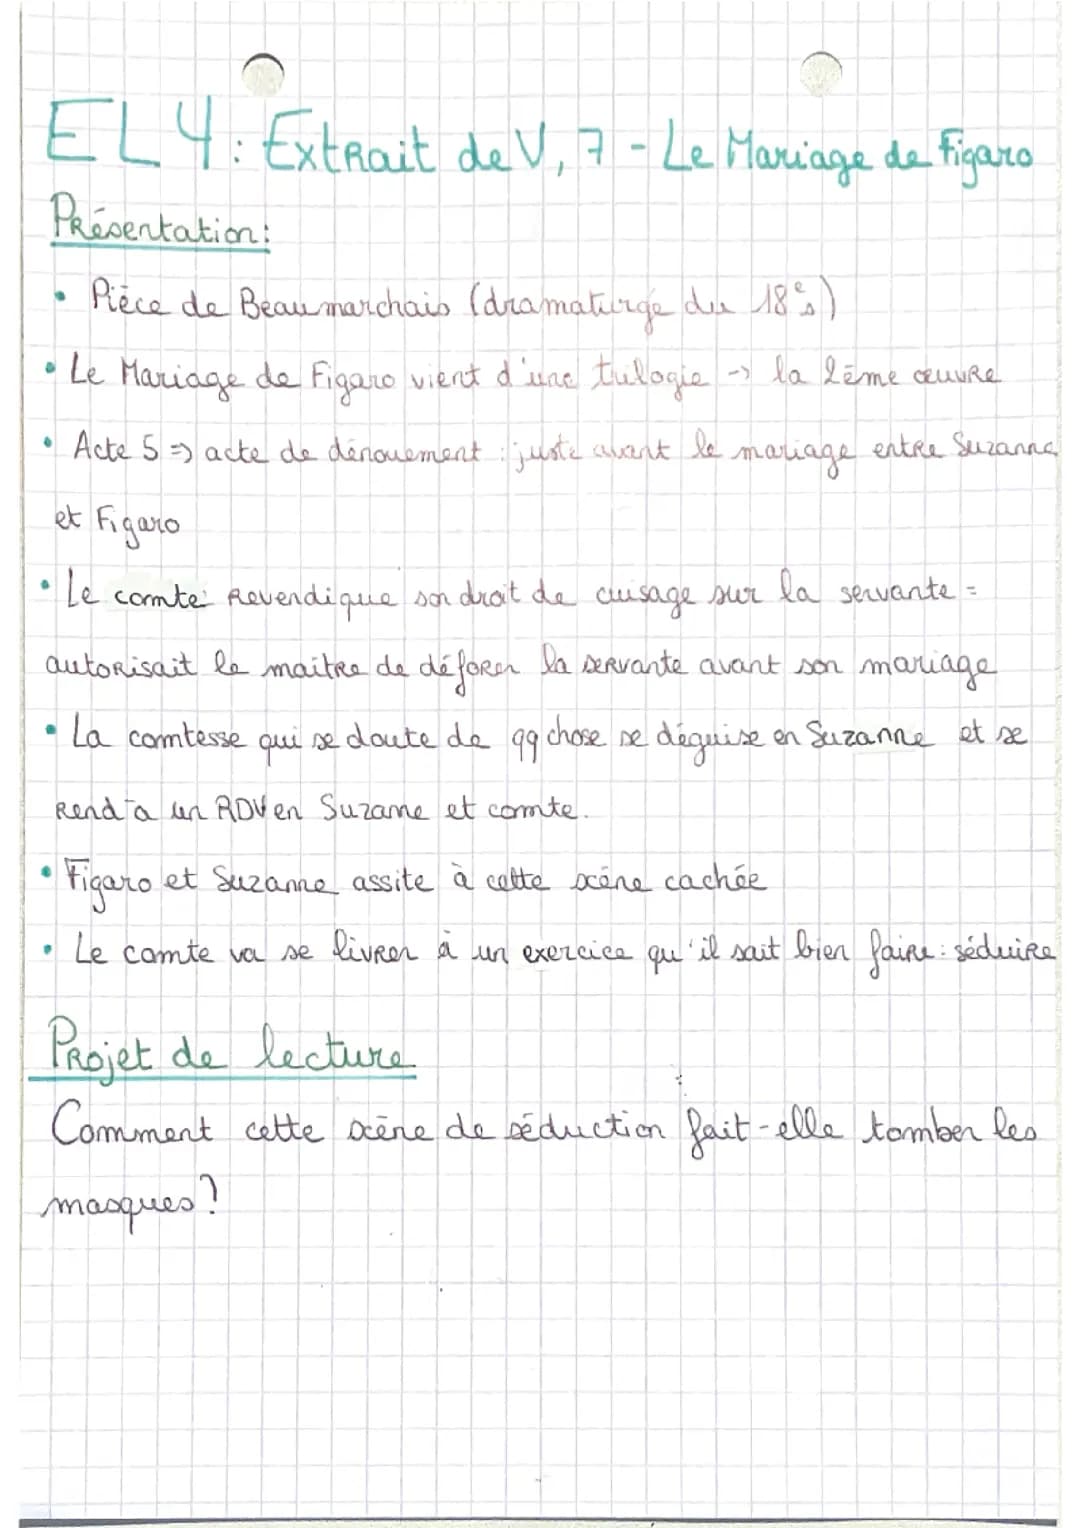 EL 4 : Extrait de V, 7 - Le Mariage de Figaro
Présentation :
• Pièce de Beaumarchais (dramaturge du 18e s)
• Le Mariage de Figaro vient d'une trilogie -> la 2ème œuvre
• Acte 5 => acte de dénouement : juste avant le mariage entre Suzanne
et Figaro
• Le comte revendique son droit de cuisage sur la servante =
autorisait le maître de déforer la servante avant son mariage
• La comtesse qui se doute de qq chose se déguise en Suzanne et se
rend à un RDV en Suzanne et comte.
• Figaro et Suzanne assite à cette scène cachée
• Le comte va se livrer à un exercice qu'il sait bien faire : séduire
Projet de lecture
Comment cette scène de séduction fait-elle tomber les
masques ?